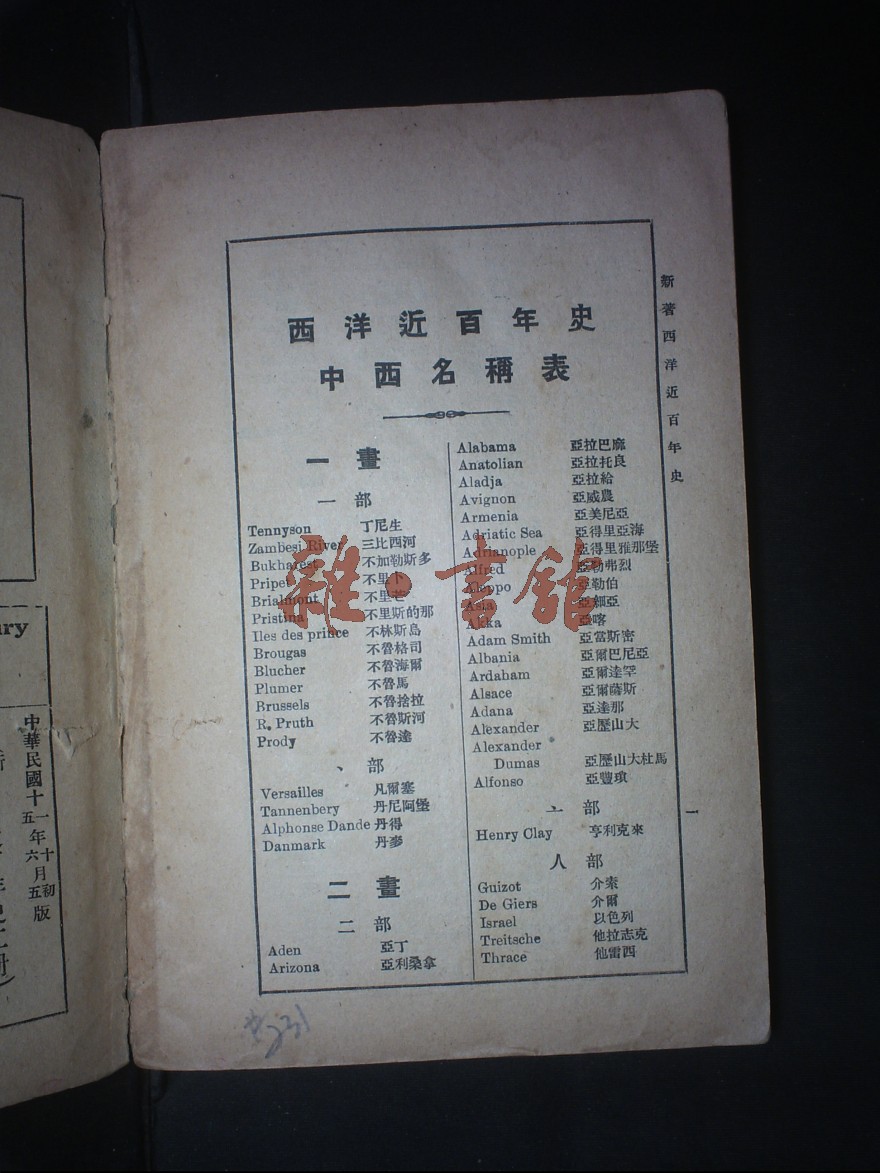 西洋近百年史
中西名稱表
一畫
一部
Tennyson 丁尼生
Zambesi River 三比西河
Bukharest 不加勒斯多
Pripet 不里卜
Brialmont 不里芒
Pristina 不里斯的那
Iles des prince 不林斯島
Brougas 不魯格司
Blucher 不魯海爾
Plumer 不魯馬
Brussels 不魯捨拉
R. Pruth 不魯斯河
Prody 不魯達
丶部
Versailles 凡爾塞
Tannenbery 丹尼阿堡
Alphonse Dande 丹得
Danmark 丹麥
二畫
二部
Aden 亞丁
Arizona 亞利桑拿
Alabama 亞拉巴麻
Anatolian 亞拉托良
Aladja 亞拉給
Avignon 亞威農
Armenia 亞美尼亞
Adriatic Sea 亞得里亞海
Adrianople 亞得里雅那堡
Alfred 亞勒弗烈
Aleppo 亞勒伯
Asia 亞細亞
Akka 亞喀
Adam Smith 亞當斯密
Albania 亞爾巴尼亞
Ardaham 亞爾達罕
Alsace 亞爾薩斯
Adana 亞達那
Alexander 亞歷山大
Alexander
Dumas 亞歷山大杜馬
Alfonso 亞豐瑣
亠部
Henry Clay 亨利克來
人部
Guizot 介索
De Giers 介爾
Israel 以色列
Treitsche 他拉志克
Thrace 他雷西
新著西洋近百年史
一
雜·書館
ury
中華民國十一年十月初版
五 六 五
#231